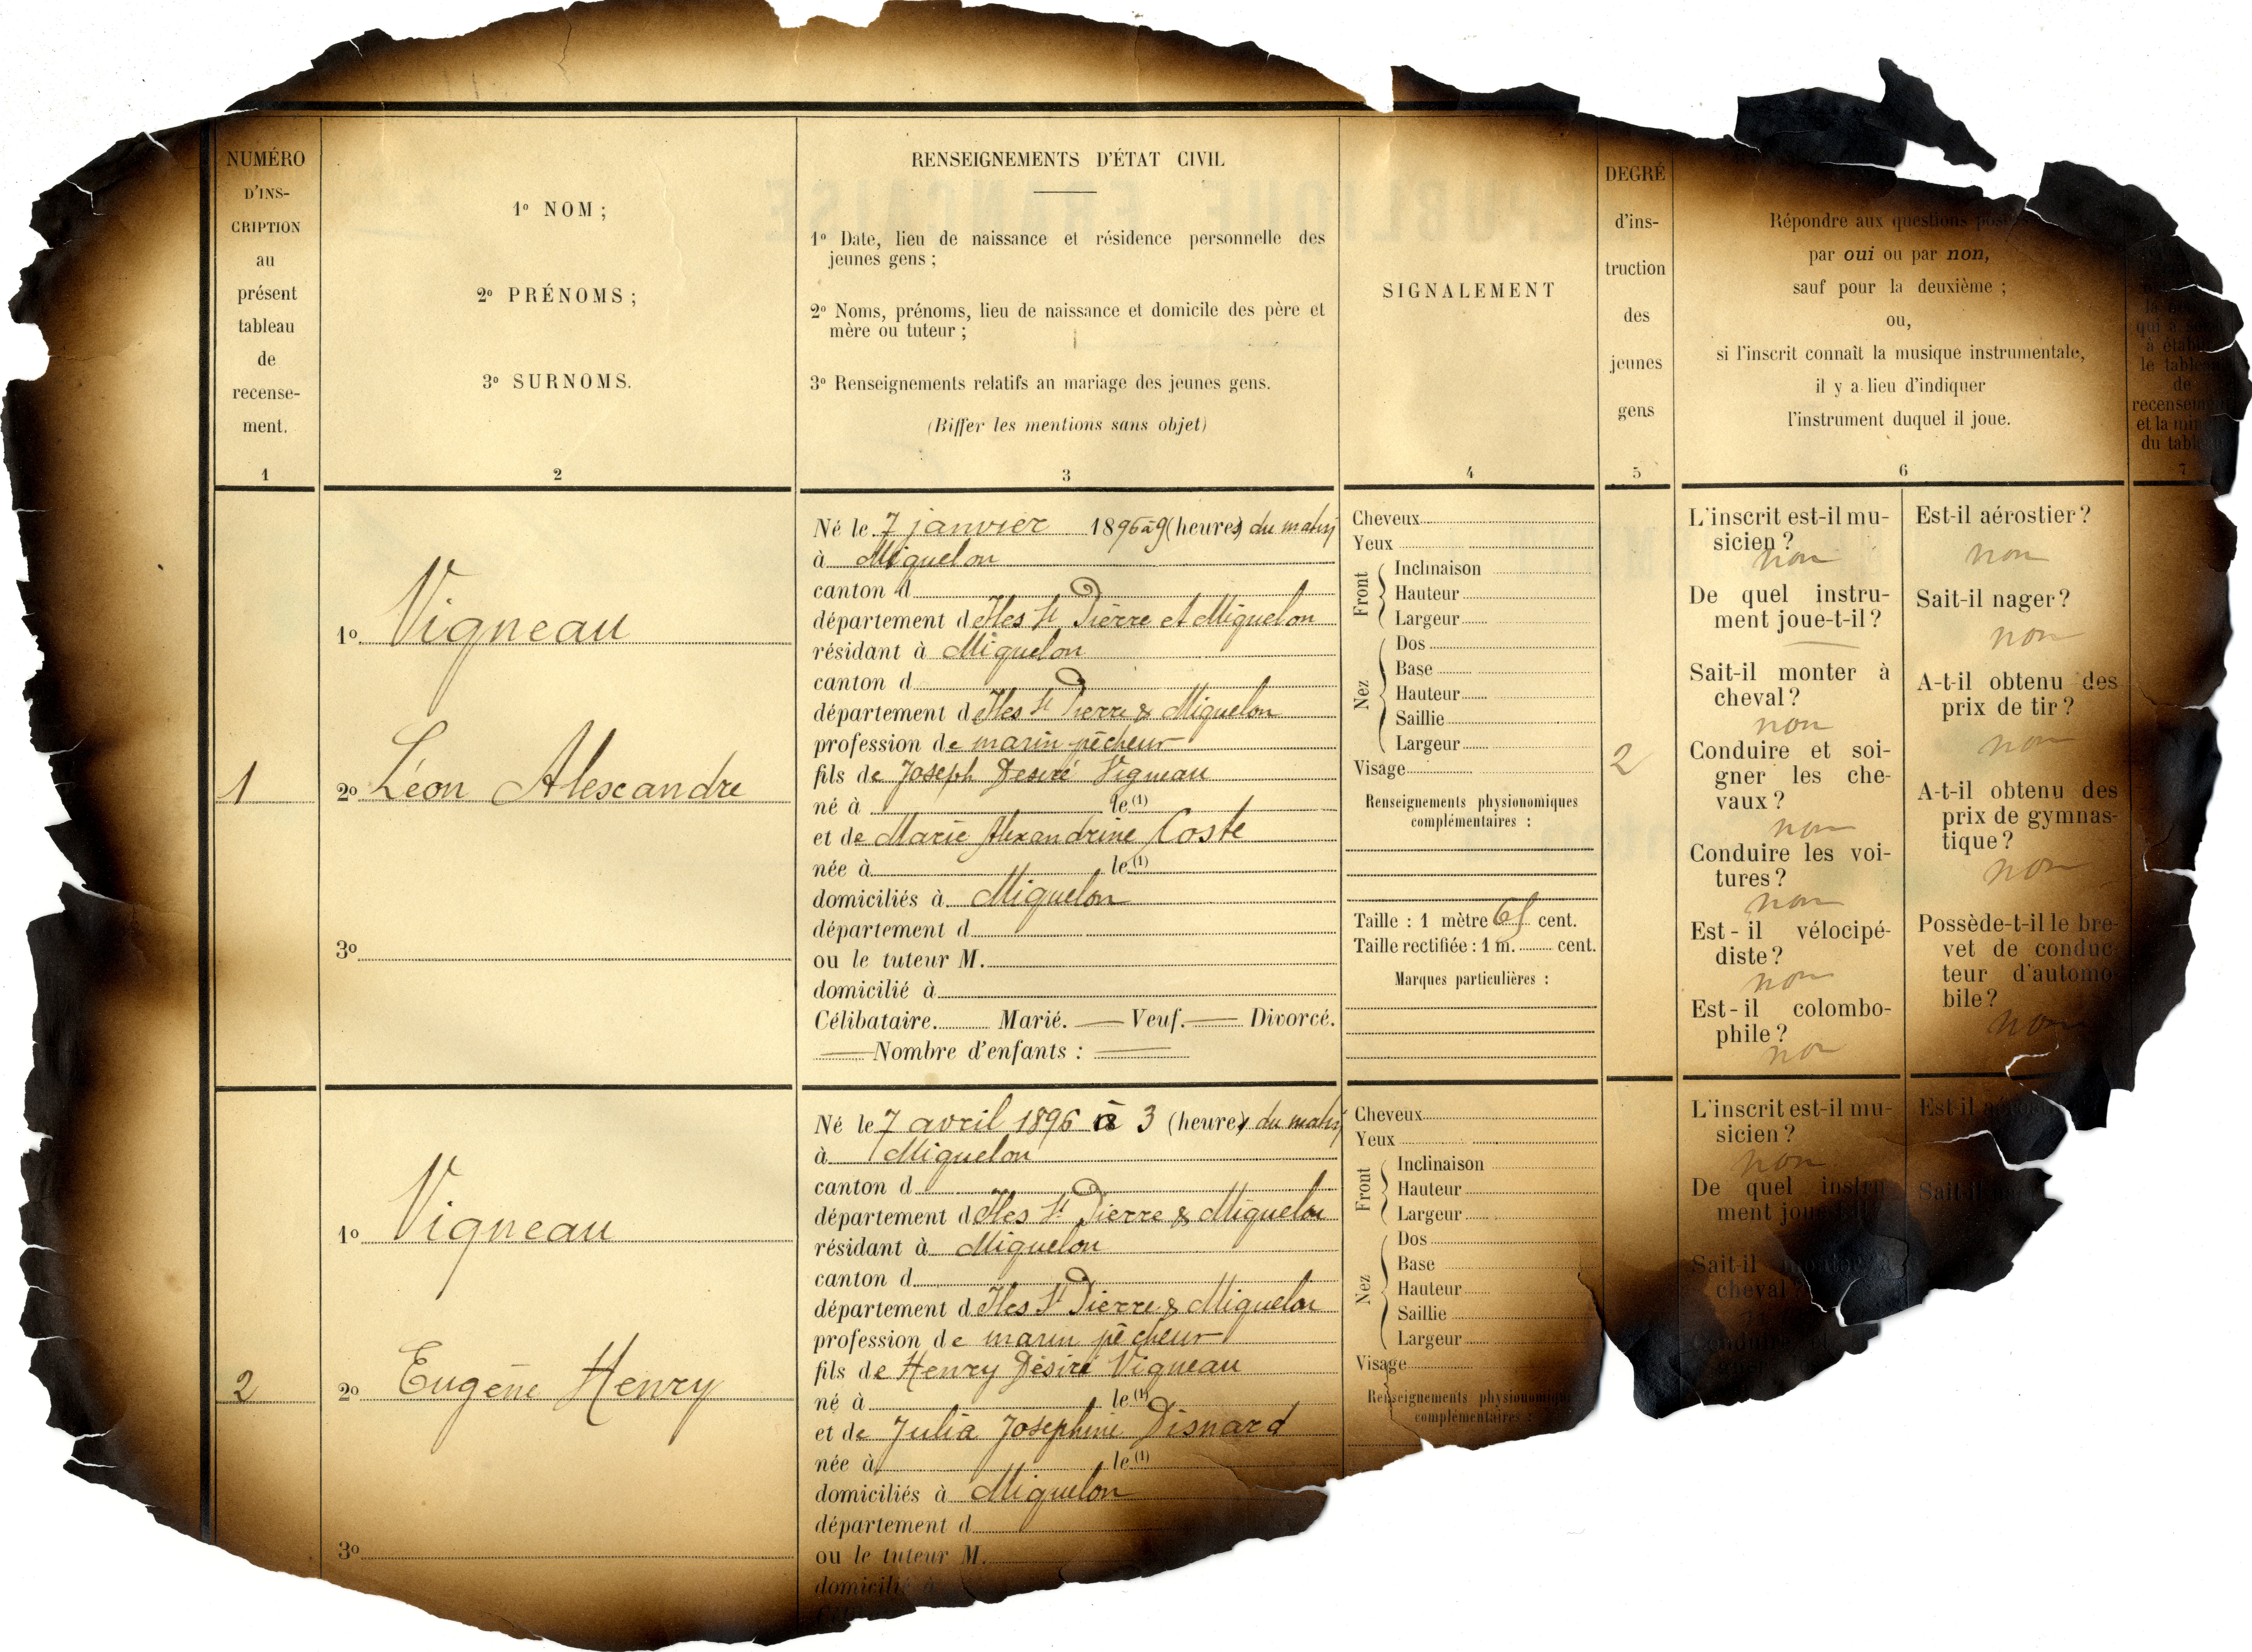 NUMÉRO
D'INS-
CRIPTION
au
présent
tableau
de
recense-
ment.
1
1º NOM ;
2º PRÉNOMS ;
3º SURNOMS.
2
RENSEIGNEMENTS D'ÉTAT CIVIL
1º Date, lieu de naissance et résidence personnelle des
jeunes gens ;
2º Noms, prénoms, lieu de naissance et domicile des père et
mère ou tuteur ;
3º Renseignements relatifs au mariage des jeunes gens.
(Biffer les mentions sans objet)
3
SIGNALEMENT
4
DEGRÉ
d'ins-
truction
des
jeunes
gens
5
Répondre aux questions
par oui ou par non,
sauf pour la deuxième ;
ou,
si l'inscrit connaît la musique instrumentale,
il y a lieu d'indiquer
l'instrument duquel il joue.
6
qui a
à
le
de
et la
du
7
1
1º Vigneau
2º Léon Alexandre
3º
Né le 7 janvier 1896 à 9 (heures) du matin
à Miquelon
canton d
département d Iles St Pierre et Miquelon
résidant à Miquelon
canton d
département d Iles St Pierre & Miquelon
profession de marin pêcheur
fils de Joseph Desiré Vigneau
né à le (1)
et de Marie Alexandrine Coste
née à le (1)
domiciliés à Miquelon
département d
ou le tuteur M.
domicilié à
Célibataire. Marié. — Veuf. — Divorcé.
— Nombre d'enfants : —
Cheveux
Yeux
Front
Inclinaison
Hauteur
Largeur
Nez
Dos
Base
Hauteur
Saillie
Largeur
Visage
Renseignements physionomiques
complémentaires :
Taille : 1 mètre 65 cent.
Taille rectifiée : 1 m. cent.
Marques particulières :
2
L'inscrit est-il mu-
sicien ?
non
De quel instru-
ment joue-t-il ?
—
Sait-il monter à
cheval ?
non
Conduire et soi-
gner les che-
vaux ?
non
Conduire les voi-
tures ?
non
Est-il vélocipé-
diste ?
non
Est-il colombo-
phile ?
non
Est-il aérostier ?
non
Sait-il nager ?
non
A-t-il obtenu des
prix de tir ?
non
A-t-il obtenu des
prix de gymnas-
tique ?
non
Possède-t-il le bre-
vet de conduc-
teur d'automo-
bile ?
non
2
1º Vigneau
2º Eugène Henry
3º
Né le 7 avril 1896 à 3 (heures) du matin
à Miquelon
canton d
département d Iles St Pierre & Miquelon
résidant à Miquelon
canton d
département d Iles St Pierre & Miquelon
profession de marin pêcheur
fils de Henry Désiré Vigneau
né à le (1)
et de Julia Josephine Disnard
née à le (1)
domiciliés à Miquelon
département d
ou le tuteur M.
domicilié à
Cheveux
Yeux
Front
Inclinaison
Hauteur
Largeur
Nez
Dos
Base
Hauteur
Saillie
Largeur
Visage
Renseignements physionomiqu
complémentaires :
L'inscrit est-il mu-
sicien ?
non
De quel instru
ment
Sait-il
cheval ?
Est-il
Sait-il